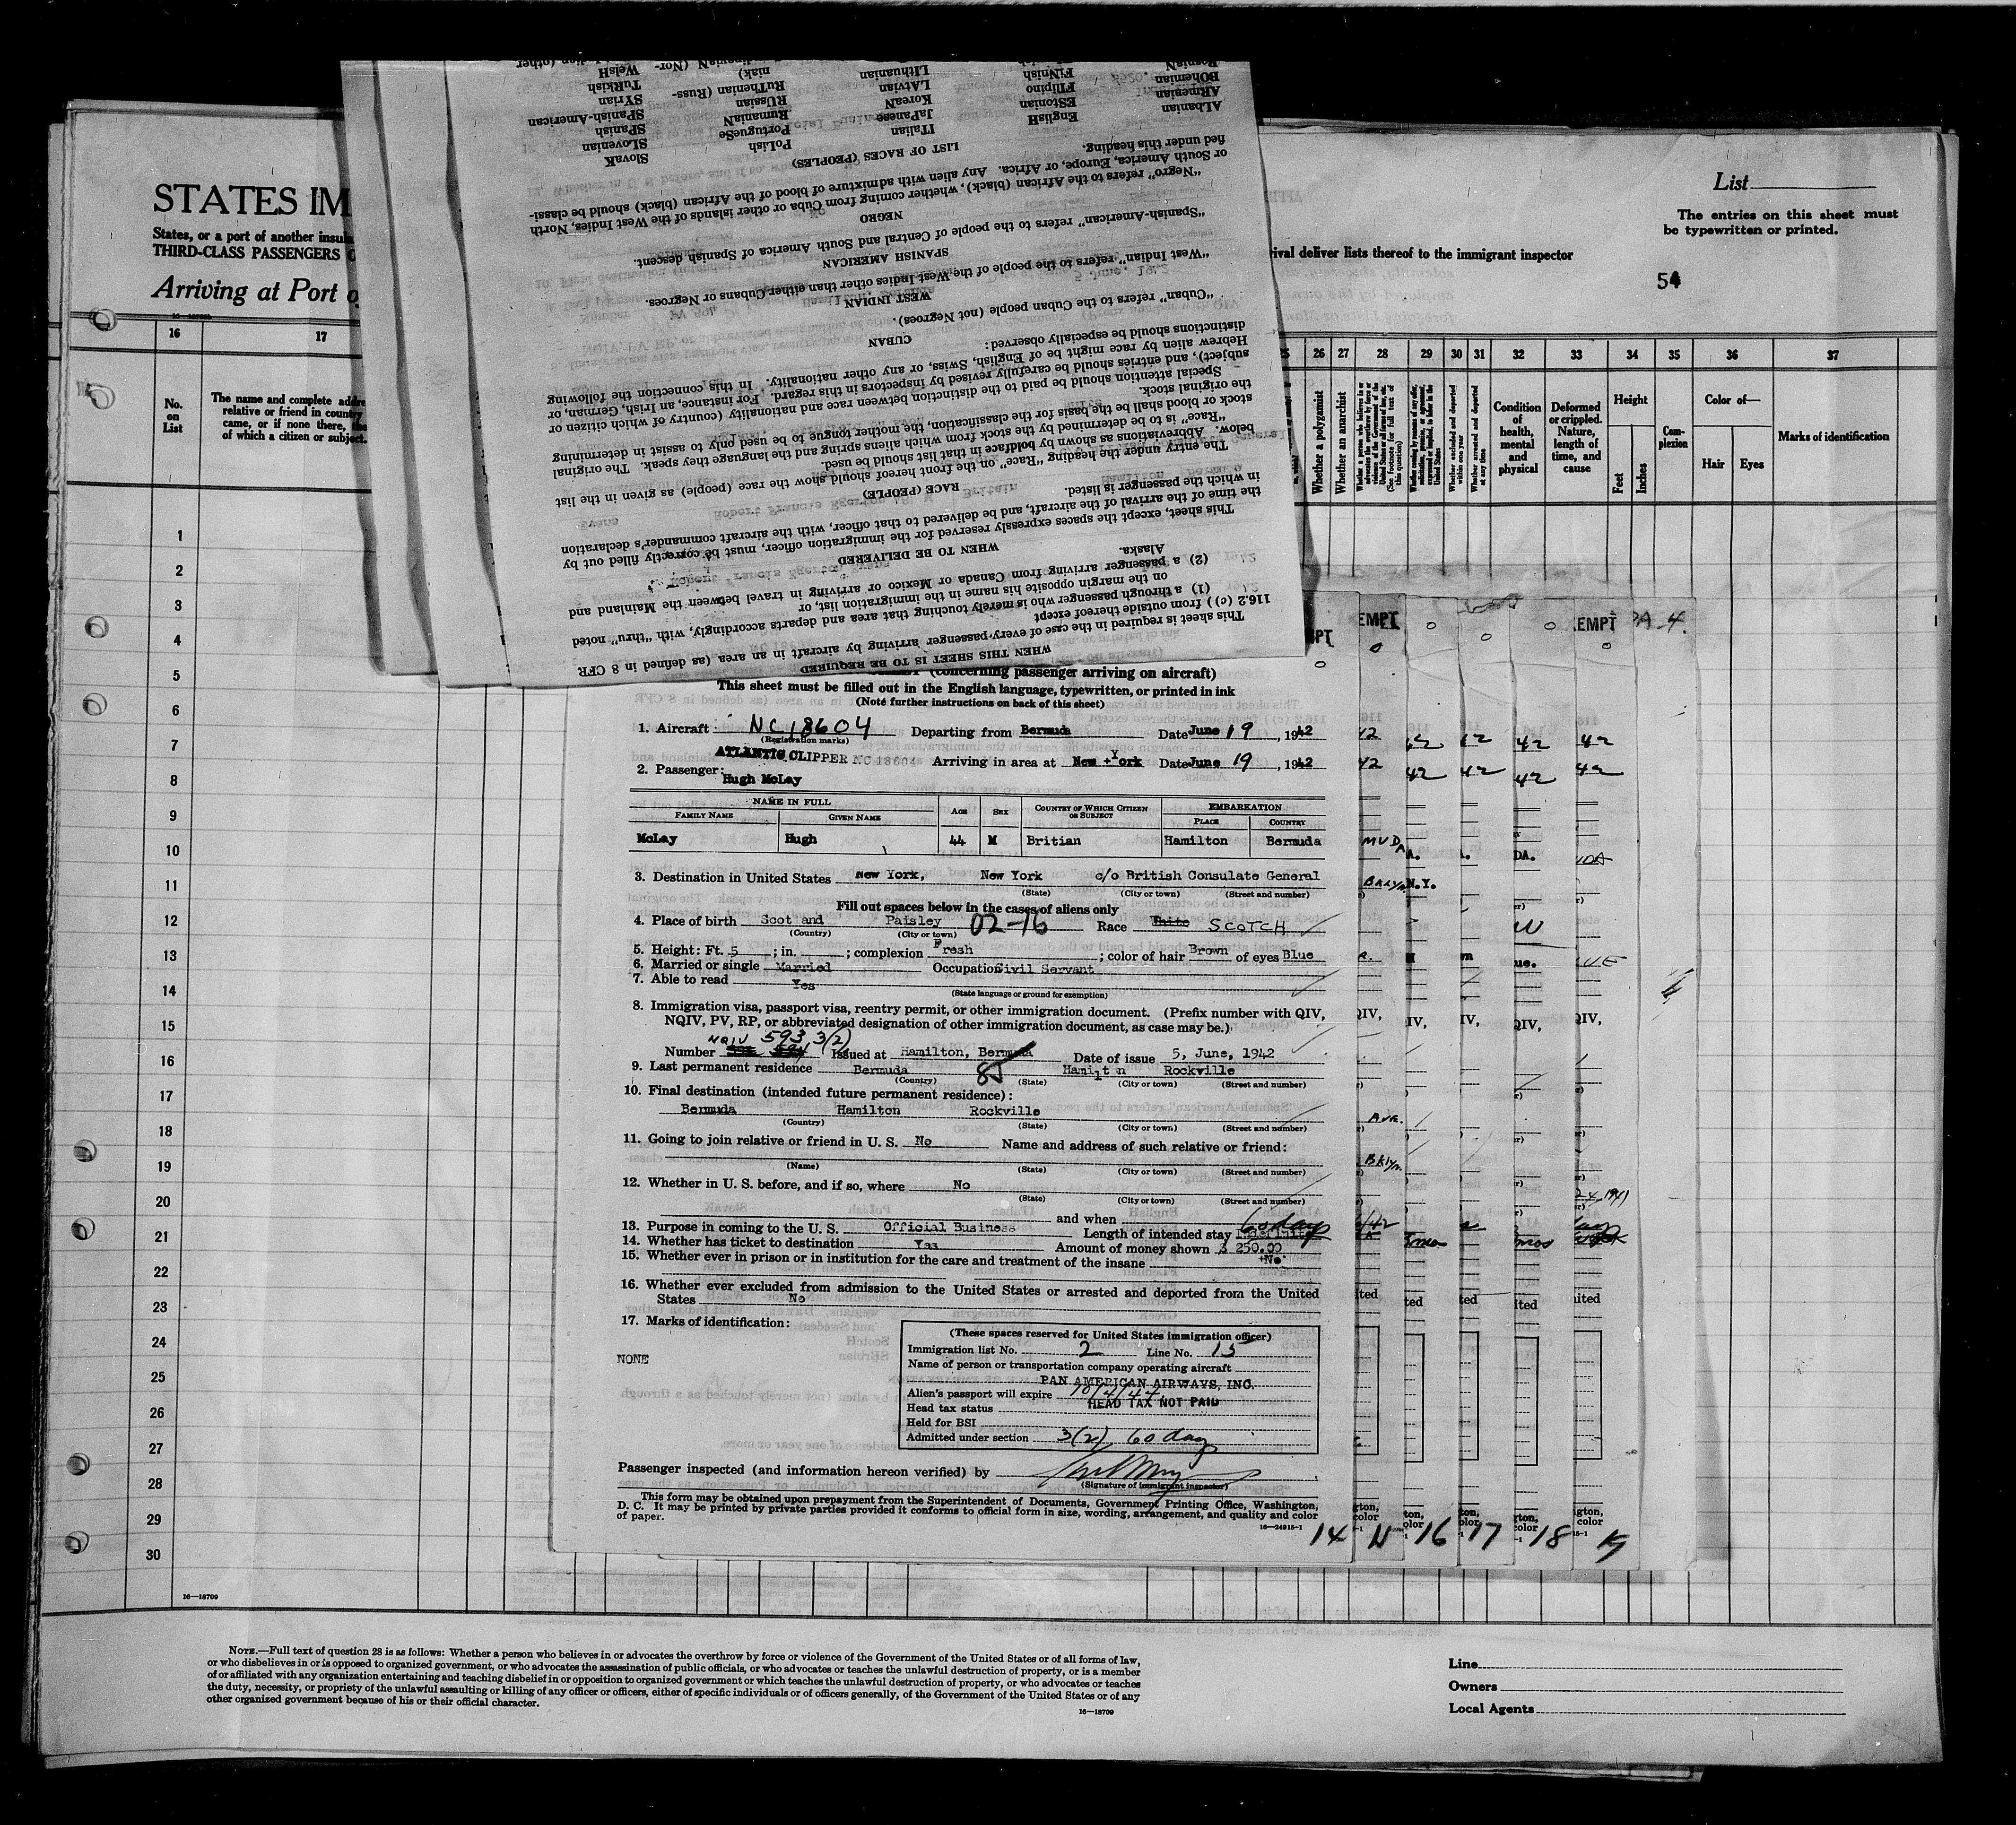 STATES IM
States, or a port of another insul
THIRD-CLASS PASSENGERS
Arriving at Port o
List
The entries on this sheet must
be typewritten or printed.
rival deliver lists thereof to the immigrant inspector
54
16 17
No.
on
List
The name and complete addre
relative or friend in country
came, or if none there, the
of which a citizen or subject.
26 27 28 29 30 31 32 33 34 35 36 37
Whether a polygamist
Whether an anarchist
Whether excluded and deported within one year
Whether arrested and deported at any time
Condition
of
health,
mental
and
physical
Deformed
or crippled.
Nature,
length of
time, and
cause
Height
Feet
Inches
Com-
plexion
Color of—
Hair Eyes
Marks of identification
1
2
3
4
5
6
7
8
9
10
11
12
13
14
15
16
17
18
19
20
21
22
23
24
25
26
27
28
29
30
16—18709
WHEN THIS SHEET IS TO BE REQUIRED
This sheet is required in the case of every passenger arriving by aircraft in an area (as defined in 8 CFR
116.2 (c)) from outside thereof except
(1) a through passenger who is merely touching that area and departs accordingly, with "thru" noted
on the margin opposite his name in the immigration list, or
(2) a passenger arriving from Canada or Mexico or arriving in travel between the Mainland and
Alaska.
WHEN TO BE DELIVERED
This sheet, except the spaces expressly reserved for the immigration officer, must be correctly filled out by
the time of the arrival of the aircraft, and be delivered to that officer, with the aircraft commander's declaration
in which the passenger is listed.
RACE (PEOPLE)
The entry under the heading "Race" on the front hereof should show the race (people) as given in the list
below. Abbreviations as shown by boldface in that list should be used.
"Race" is to be determined by the stock from which aliens spring and the language they speak. The original
stock or blood shall be the basis for the classification, the mother tongue to be used only to assist in determining
the original stock.
Special attention should be paid to the distinction between race and nationality (country of which citizen or
subject), and entries should be carefully revised by inspectors in this regard. For instance, an Irish, German, or
Hebrew alien by race might be of English, Swiss, or any other nationality. In this connection the following
distinctions should be especially observed:
CUBAN
"Cuban" refers to the Cuban people (not Negroes).
WEST INDIAN
"West Indian" refers to the people of the West Indies other than either Cubans or Negroes.
SPANISH AMERICAN
"Spanish-American" refers to the people of Central and South America of Spanish descent.
NEGRO
"Negro" refers to the African (black), whether coming from Cuba or other islands of the West Indies, North
or South America, Europe, or Africa. Any alien with admixture of blood of the African (black) should be classi-
fied under this heading.
LIST OF RACES (PEOPLES)
ALbanian EnglisH ITalian PoLish SlovaK
ARmenian EStonian JaPanese PortugueSe SLovenian
BOhemian FIlipino KoreaN RumaniaN SPanish
BosniaN FiNnish LAtvian RUssian SPanish-American
LIthuanian RuThenian (Russ-
niak) SYrian
TuRkish
WelsH
(concerning passenger arriving on aircraft)
This sheet must be filled out in the English language, typewritten, or printed in ink
(Note further instructions on back of this sheet)
1. Aircraft NC18604 Departing from Bermuda Date June 19, 1942
(Registration marks)
ATLANTIC CLIPPER NC 18604 Arriving in area at New York Date June 19, 1942
2. Passenger: Hugh McLay
NAME IN FULL AGE SEX COUNTRY OF WHICH CITIZEN OR SUBJECT EMBARKATION
FAMILY NAME GIVEN NAME PLACE COUNTRY
McLay Hugh 44 M Britian Hamilton Bermuda
3. Destination in United States New York, New York c/o British Consulate General
(State) (City or town) (Street and number)
Fill out spaces below in the cases of aliens only
4. Place of birth Scot and Paisley 02-16 Race White SCOTCH
(Country) (City or town)
5. Height: Ft. 5; in. ; complexion Fresh; color of hair Brown of eyes Blue
6. Married or single Married Occupation Civil Servant
7. Able to read Yes
(State language or ground for exemption)
8. Immigration visa, passport visa, reentry permit, or other immigration document. (Prefix number with QIV,
NQIV, PV, RP, or abbreviated designation of other immigration document, as case may be.)
NQIV 593 3(2)
Number Issued at Hamilton, Bermuda Date of issue 5, June, 1942
9. Last permanent residence Bermuda 85 Hamilton Rockville
(Country) (State) (City or town) (Street and number)
10. Final destination (intended future permanent residence):
Bermuda Hamilton Rockville
(Country) (State) (City or town) (Street and number)
11. Going to join relative or friend in U. S. No Name and address of such relative or friend:
(Name) (State) (City or town) (Street and number)
12. Whether in U. S. before, and if so, where No
(State) (City or town) (Street and number)
and when
13. Purpose in coming to the U. S. Official Business Length of intended stay 60 days
14. Whether has ticket to destination Yes Amount of money shown $ 250.00
15. Whether ever in prison or in institution for the care and treatment of the insane No
16. Whether ever excluded from admission to the United States or arrested and deported from the United
States No
17. Marks of identification:
NONE
(These spaces reserved for United States immigration officer)
Immigration list No. 2 Line No. 15
Name of person or transportation company operating aircraft
PAN AMERICAN AIRWAYS, INC.
Alien's passport will expire 10/4/47
Head tax status HEAD TAX NOT PAID
Held for BSI
Admitted under section 3(2) 60 days
Passenger inspected (and information hereon verified) by
(Signature of immigrant inspector)
This form may be obtained upon prepayment from the Superintendent of Documents, Government Printing Office, Washington,
D. C. It may be printed by private parties provided it conforms to official form in size, wording, arrangement, and quality and color
of paper.
16—24915-1
14 16 17 18
NOTE.—Full text of question 28 is as follows: Whether a person who believes in or advocates the overthrow by force or violence of the Government of the United States or of all forms of law,
or who disbelieves in or is opposed to organized government, or who advocates the assassination of public officials, or who advocates or teaches the unlawful destruction of property, or is a member
of or affiliated with any organization entertaining and teaching disbelief in or opposition to organized government or which teaches the unlawful destruction of property, or who advocates or teaches
the duty, necessity, or propriety of the unlawful assaulting or killing of any officer or officers, either of specific individuals or of officers generally, of the Government of the United States or of any
other organized government because of his or their official character.
16—18709
Line
Owners
Local Agents